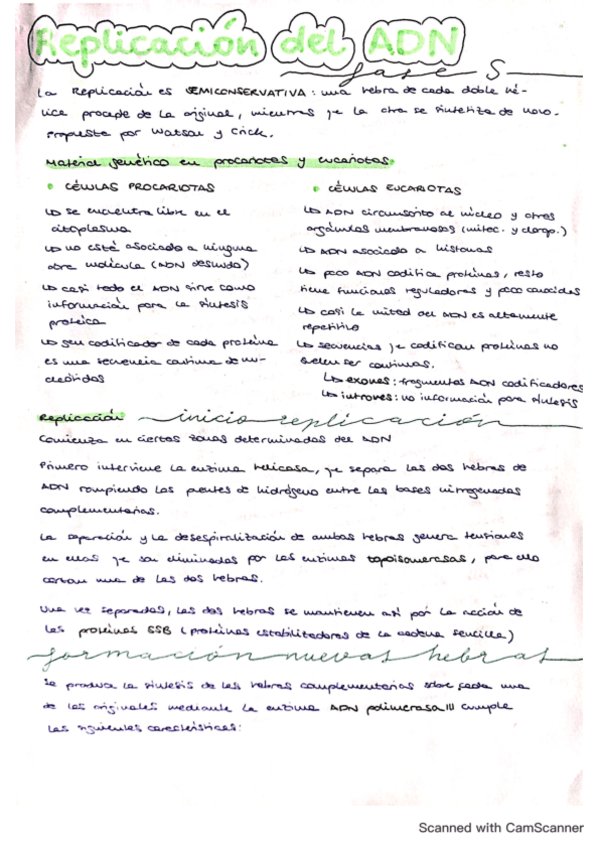 Replicación del ADN
fase S
La Replicación es SEMICONSERVATIVA: una hebra de cada doble hé-
lice procede de la original, mientras qe la otra se sintetiza de novo.
Propuesta por Watson y Crick.
Material genético en procariotas y eucariotas
• CÉLULAS PROCARIOTAS
↳ se encuentra libre en el
citoplasma
↳ no está asociado a ninguna
otra molécula (ADN desnudo)
↳ casi todo el ADN sirve como
información para la síntesis
proteica
↳ gen codificador de cada proteína
es una secuencia continua de nu-
cleótidos
• CÉLULAS EUCARIOTAS
↳ ADN circunscrito al núcleo y otros
orgánulos membranosos (mitoc. y clorop.)
↳ ADN asociado a histonas
↳ poco ADN codifica proteínas, resto
tiene funciones reguladoras y poco conocidas
↳ casi la mitad del ADN es altamente
repetitivo
↳ secuencias qe codifican proteínas no
suelen ser continuas.
↳ exones: fragmentos ADN codificadores
↳ intrones: no información para síntesis
Replicación inicio replicación
Comienza en ciertas zonas determinadas del ADN
Primero interviene la enzima Helicasa, qe separa las dos hebras de
ADN rompiendo los puentes de hidrógeno entre las bases nitrogenadas
complementarias.
La separación y la desespiralización de ambas hebras genera tensiones
en ellas qe son eliminadas por las enzimas topoisomerasas, para ello
cortan una de las dos hebras.
Una vez separadas, las dos hebras se mantienen así por la acción de
las proteínas SSB (proteínas estabilizadoras de la cadena sencilla)
formación nuevas hebras
Se produce la síntesis de las hebras complementarias sobre cada una
de las originales mediante la enzima ADN polimerasa III cumple
las siguientes características:
Scanned with CamScanner